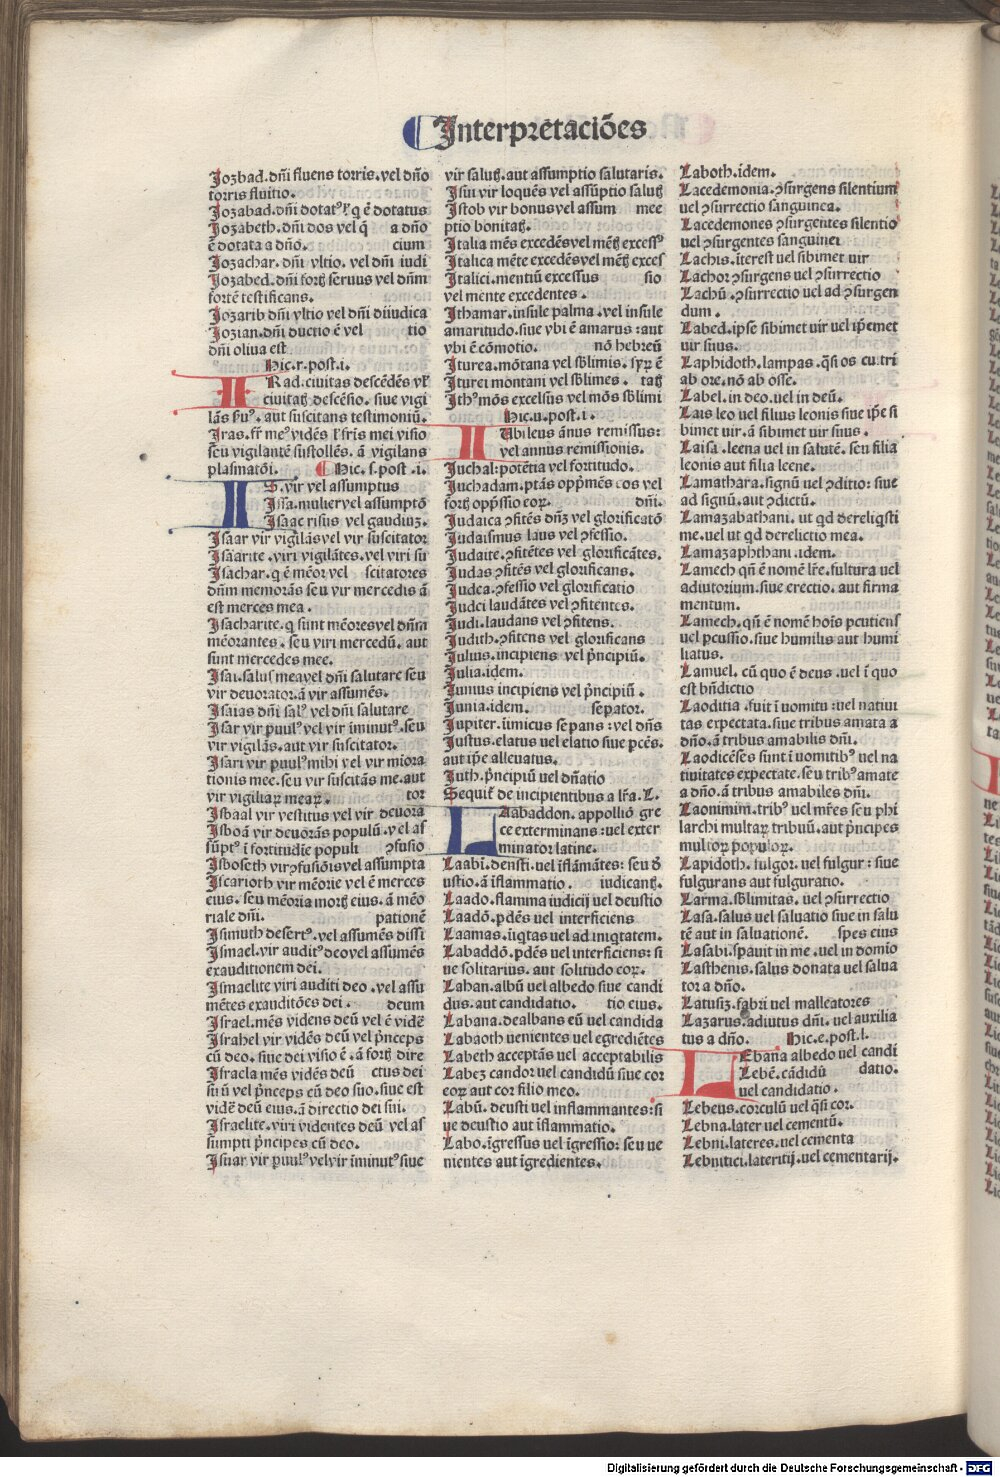 Interpretaciōes
Jozbad. dn̄i fluens torris. vel dn̄o
torris fluitio.
Jozabad. dn̄i dotatꝰ ł q ē dotatus
Jozabeth. dn̄i dos vel q̄ a dn̄o
ē dotata a dn̄o. cium
Jozachar. dn̄i vltio. vel dn̄i iudi
Jozabed. dn̄i fortꝭ seruus vel dn̄m
fortē testificans.
Jozarib dn̄i vltio vel dn̄i diiudica
Jozian. dn̄i ductio ē vel tio
dn̄i oliua est
Hic. r. post. i.
IRad. ciuitas descēdēs vł
ciuitatꝭ descēsio. siue vigi
lās . aut suscitans testimoniū.
Jras. fr̄ meꝰ vidēs ł fris mei visio
seu vigilantē sustollēs. ā vigilans
plasmatōi. Hic. s. post .i.
IS. vir vel assumptus
Jssa. mulier vel assumptō
Jsaac risus vel gaudiuꝫ.
Jsaar vir vigilās vel vir suscitator
Jsaarite. viri vigilātes. vel viri su
Jsachar. q ē mēor vel scitatores
dn̄m memorās seu vir mercedis ā
est merces mea.
Jsacharite. q sunt mēores vel dn̄m
mēorantes. seu viri mercedū. aut
sunt mercedes mee.
Jsai. salus mea vel dn̄i salutare seu
vir deuorator. ā vir assumēs.
Jsaias dn̄i salꝰ vel dn̄i salutare
Jsar vir puulꝰ vel vir īminutꝰ. seu
vir vigilās. aut vir suscitator.
Jsari vir puulꝰ mihi vel vir miora
tionis mee. seu vir suscitās me. aut
vir vigiliaꝝ meaꝝ. tor
Jsbaal vir vestitus vel vir deuora
Jsboā vir deuorās populū. vel as
sūptꝰ ī fortitudie populi ꝯfusio
Jsboseth vir ꝯfusiōis vel assumpta
Jscarioth vir mēorie vel ē merces
eius. seu mēoria mortꝭ eius. ā mēo
riale dn̄i. pationē
Jsimuth desertꝰ. vel assumēs dissi
Jsmael. vir auditꝰ deo vel assumēs
exauditionem dei.
Jsmaelite viri auditi deo . vel assu
mētes exauditōes dei. deum
Jsrael. mēs videns deū vel ē vidē
Jsrahel vir vidēs deū vel pn̄ceps
cū deo. siue dei visio ē. ā fortꝭ dire
Jsraela mēs vidēs deū ctus dei
siuū vel pn̄ceps cū deo suo. siue est
vidē deū eius. ā directio dei sui.
Jsraelite. viri videntes deū vel as
sumpti pn̄cipes cū deo.
Jsuar vir puulꝰ vel vir īminutꝰ siue
vir salutꝭ. aut assumptio salutaris.
Jsūt vir loquēs vel assūptio salutꝭ
Jstob vir bonus vel assum mee
ptio bonitatꝭ.
Jtalia mēs excedēs vel mētꝭ excessꝰ
Jtalica mēte excedēs vel mētꝭ exces
Jtalici. mentiū excessus sio
vel mente excedentes.
Jthamar. insule palma . vel insule
amaritudo. siue vbi ē amarus : aut
vbi ē cōmotio. nō hebreū
Jturea. mōtana vel sblimis. syꝝ ē
Jturei montani vel sblimes. tatꝭ
Jthꝰ mōs excelsus vel mōs sblimi
Hic. u. post .i.
IUbileus ānus remissus:
vel annus remissionis.
Juchal: potētia vel fortitudo.
Juchadam. ptās opp̄mēs eos vel
fortꝭ opp̄ssio eoꝝ. dn̄i.
Judaica ꝯfitēs dn̄ꝫ vel glorificatō
Judaismus laus vel ꝯfessio.
Judaite. ꝯfitētes vel glorificātes.
Judas ꝯfitēs vel glorificans.
Judea. ꝯfessio vel glorificatio
Judei laudātes vel ꝯfitentes.
Judi. laudans vel ꝯfitens.
Judith. ꝯfitens vel glorificans
Julius. incipiens vel pn̄cipiū.
Julia. idem.
Junius incipiens vel pn̄cipiū .
Junia. idem. separator.
Jupiter. iimicus separans : vel dn̄s
Justus. elatus vel elatio siue pcēs.
aut ip̄e alleuatus.
Juth. pn̄cipiū uel dn̄atio
Sequit̄ de incipientibus a lr̄a. L.
LAabaddon. appollio gre
ce exterminans : uel exter
minator latine.
Laabī. deusti. uel īflāmātes : seu d
ustio. ā īflammatio. iudicantꝭ.
Laado. flamma iudicij uel deustio
Laadō. pdēs uel interficiens
Laamas. īiqtas uel ad iniqtatem.
Labaddō. pdēs uel interficiens: si
ue solitarius. aut solitudo eoꝝ.
Lahan. albū uel albedo siue candi
dus. aut candidatio. tio eius.
Labana. dealbans eū uel candida
Labaoth uenientes uel egrediētes
Labeth acceptās uel acceptabilis
Labeꝫ candor uel candidū siue cor
eoꝝ aut cor filio meo.
Labū. deusti uel inflammantes: si
ue deustio aut īflammatio.
Labo. īgressus uel īgressio: seu ue
nientes aut īgredientes.
Laboth. idem.
Lacedemonia. ꝯsurgens silentium
uel ꝯsurrectio sanguinea.
Lacedemones ꝯsurgentes silentio
uel ꝯsurgentes sanguinei
Lachis. īterest uel sibimet uir
Lachor ꝯsurgens uel ꝯsurrectio
Lachū. ꝯsurrectio uel ad ꝯsurgen
dum.
Labed. ipse sibimet uir uel ip̄emet
uir suus.
Laphidoth. lampas. qsi os cu. tri
ab ore. nō ab osse.
Label. in deo. uel in deū.
Lais leo uel filius leonis siue ip̄e si
bimet uir. ā sibimet uir suus.
Laisa. leena uel in salutē. seu filia
leonis aut filia leene.
Lamathara. signū uel ꝯditio: siue
ad signū. aut ꝯdictū.
Lamazabathani. ut qd dereliqsti
me. uel ut qd derelictio mea.
Lamazaphthani. idem.
Lamech qn̄ ē nomē lr̄e. fultura uel
adiutorium. siue erectio. aut firma
mentum.
Lamech. qn̄ ē nomē hoīs pcutiens
uel pcussio. siue humilus aut humi
liatus.
Lamuel. cū quo ē deus . uel ī quo
est bn̄dictio
Laoditia . fuit ī uomitu : uel natiui
tas expectata. siue tribus amata a
dn̄o. ā tribus amabilis dn̄i.
Laodicēses sunt ī uomitibꝰ uel na
tiuitates expectate. seu tribꝰ amate
a dn̄o. ā tribus amabiles dn̄i.
Laonimim. tribꝰ uel mr̄es seu phi
larchi multaꝝ tribuū. aut pn̄cipes
multoꝝ populoꝝ.
Lapidoth. fulgor. uel fulgur : siue
fulgurans aut fulguratio.
Larma. sblimitas. uel ꝯsurrectio
Lasa. salus uel saluatio siue in salu
tē aut in saluationē. spes eius
Lasabi. spauit in me . uel in domio
Lasthenis. salus donata uel salua
tor a dn̄o.
Latusiꝫ. fabri uel malleatores
Lazarus. adiutus dn̄i. uel auxilia
tus a dn̄o. Hic. e. post. l.
LEbana albedo uel candi
Lebē. cādidū datio.
uel candidatio.
Lebeus. corculū uel qsi cor.
Lebna. later uel cementū.
Lebni. lateres. uel cementa
Lebnitici. lateritij. uel cementarij.
Digitalisierung gefördert durch die Deutsche Forschungsgemeinschaft - DFG